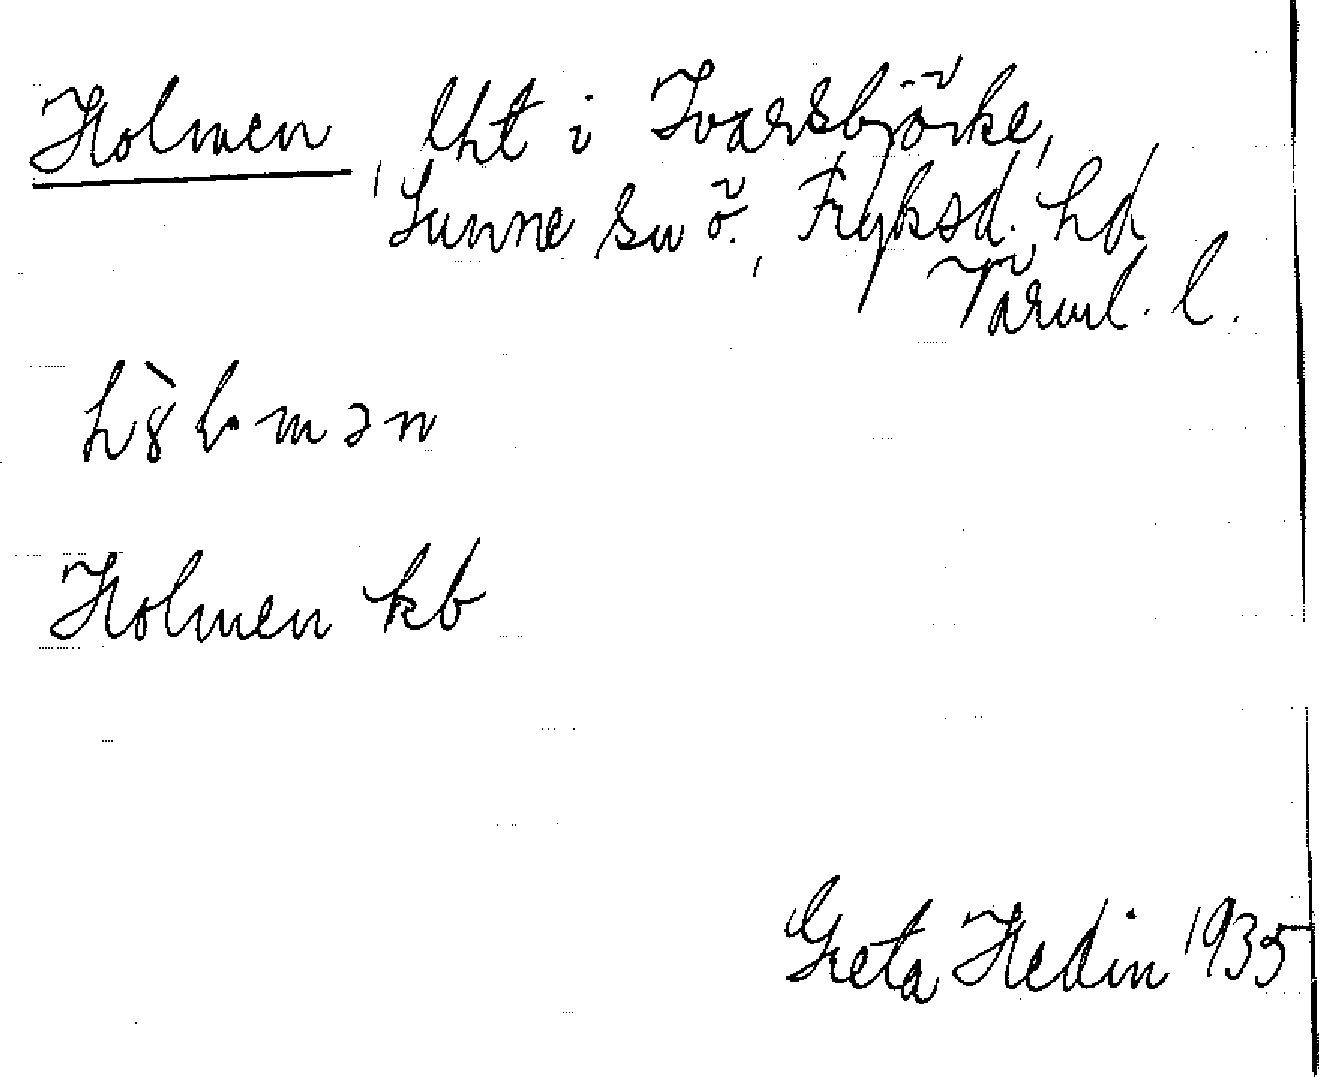 Holmen, lht i Ivarsbjörke,
Sunne sn ö., Fryksd. hd
Värml. l.
Holmen kb
Greta Hedin 1935